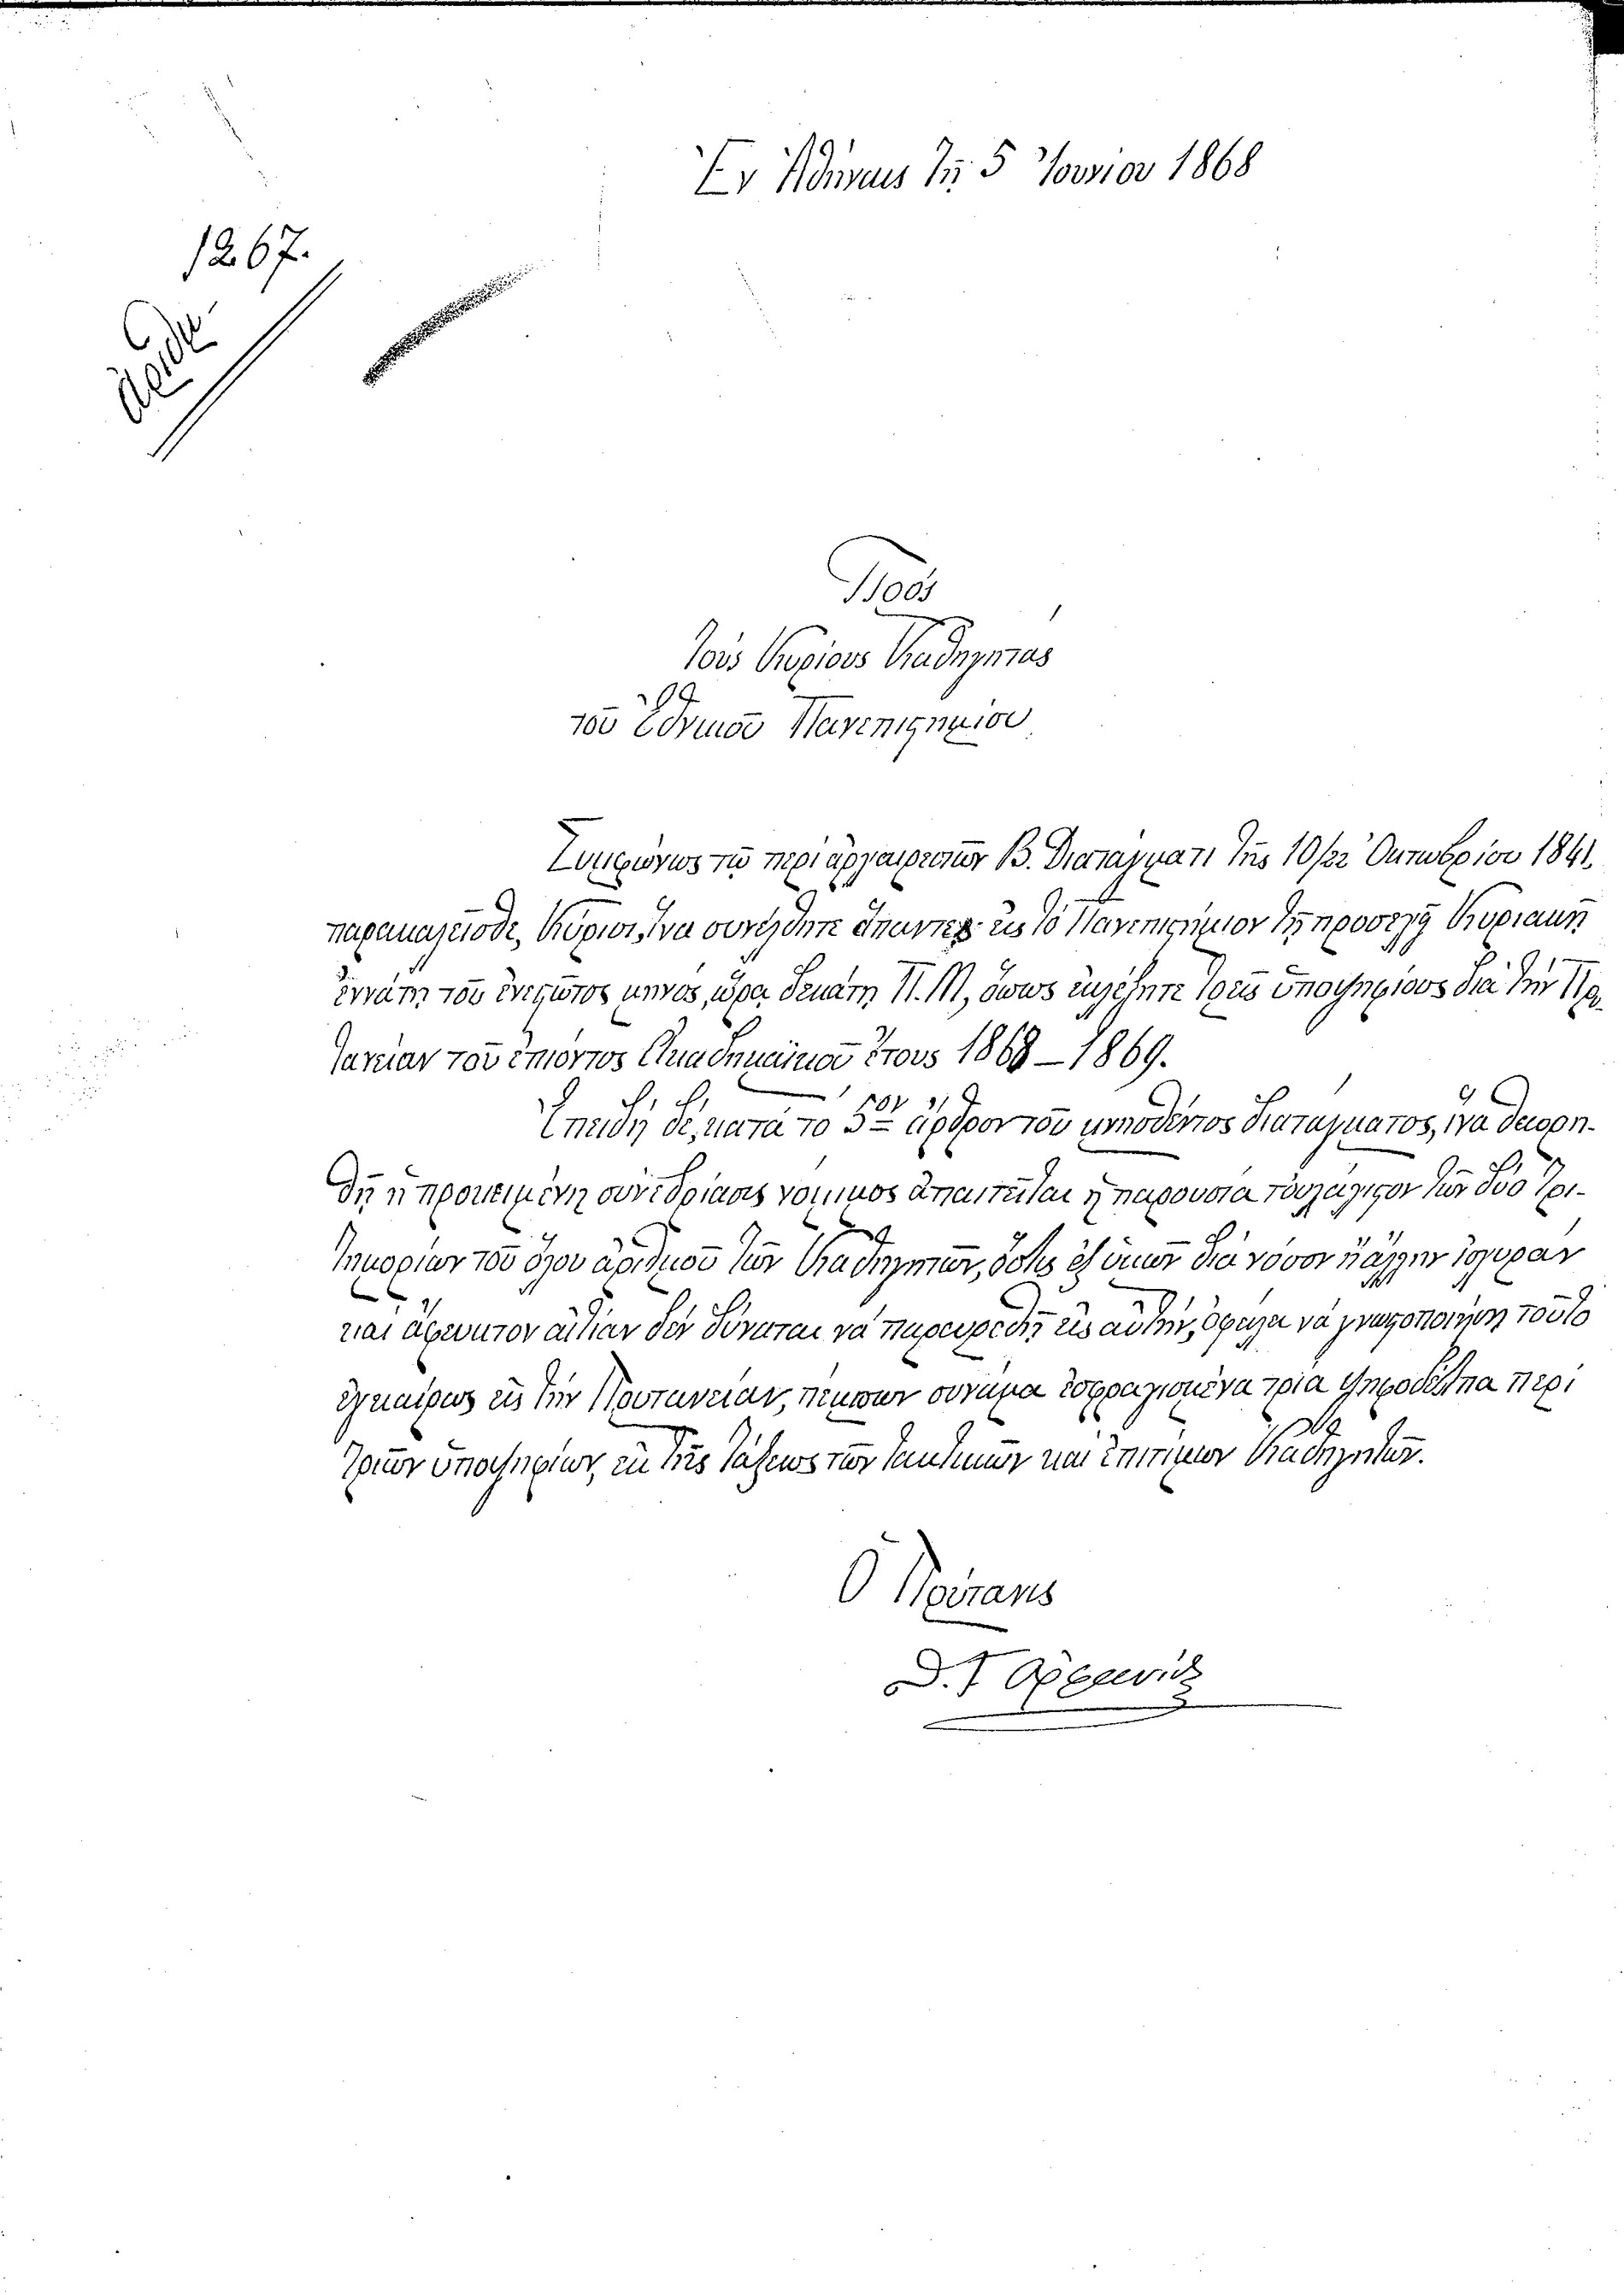 Ἐν Ἀθήναις τῇ 5 Ἰουνίου 1868
1267.
Πρὸς
τοὺς Κυρίους Καθηγητὰς
τοῦ Ἐθνικοῦ Πανεπιστημίου
Συμφώνως τῷ περὶ ἀρχαιρεσιῶν Β. Διατάγματι τῆς 10/22 Ὀκτωβρίου 1841,
παρακαλεῖσθε, Κύριοι, ἵνα συνέλθητε ἅπαντες εἰς τὸ Πανεπιστήμιον τῇ προσεχῇ Κυριακῇ
ἐννάτῃ τοῦ ἐνεστῶτος μηνὸς, ὥρᾳ δεκάτῃ Π. Μ, ὅπως ἐκλέξητε τρεῖς ὑποψηφίους διὰ τὴν Πρυ-
τανείαν τοῦ ἐπιόντος Ἀκαδημαϊκοῦ ἔτους 1868–1869.
Ἐπειδὴ δὲ, κατὰ τὸ 5ον ἄρθρον τοῦ μνησθέντος διατάγματος, ἵνα θεωρη-
θῇ ἡ προκειμένη συνεδρίασις νόμιμος ἀπαιτεῖται ἡ παρουσία τοὐλάχιστον τῶν δύο τρι-
τημορίων τοῦ ὅλου ἀριθμοῦ τῶν Καθηγητῶν, ὅστις ἐξ ὑμῶν διὰ νόσον ἢ ἄλλην ἰσχυρὰν
καὶ ἄφευκτον αἰτίαν δὲν δύναται νὰ παρευρεθῇ εἰς αὐτὴν, ὀφείλει νὰ γνωστοποιήσῃ τοῦτο
ἐγκαίρως εἰς τὴν Πρυτανείαν, πέμπων συνάμα ἐσφραγισμένα τρία ψηφοδέλτια περὶ
τριῶν ὑποψηφίων, ἐκ τῆς τάξεως τῶν τακτικῶν καὶ ἐπιτίμων Καθηγητῶν.
Ὁ Πρύτανις